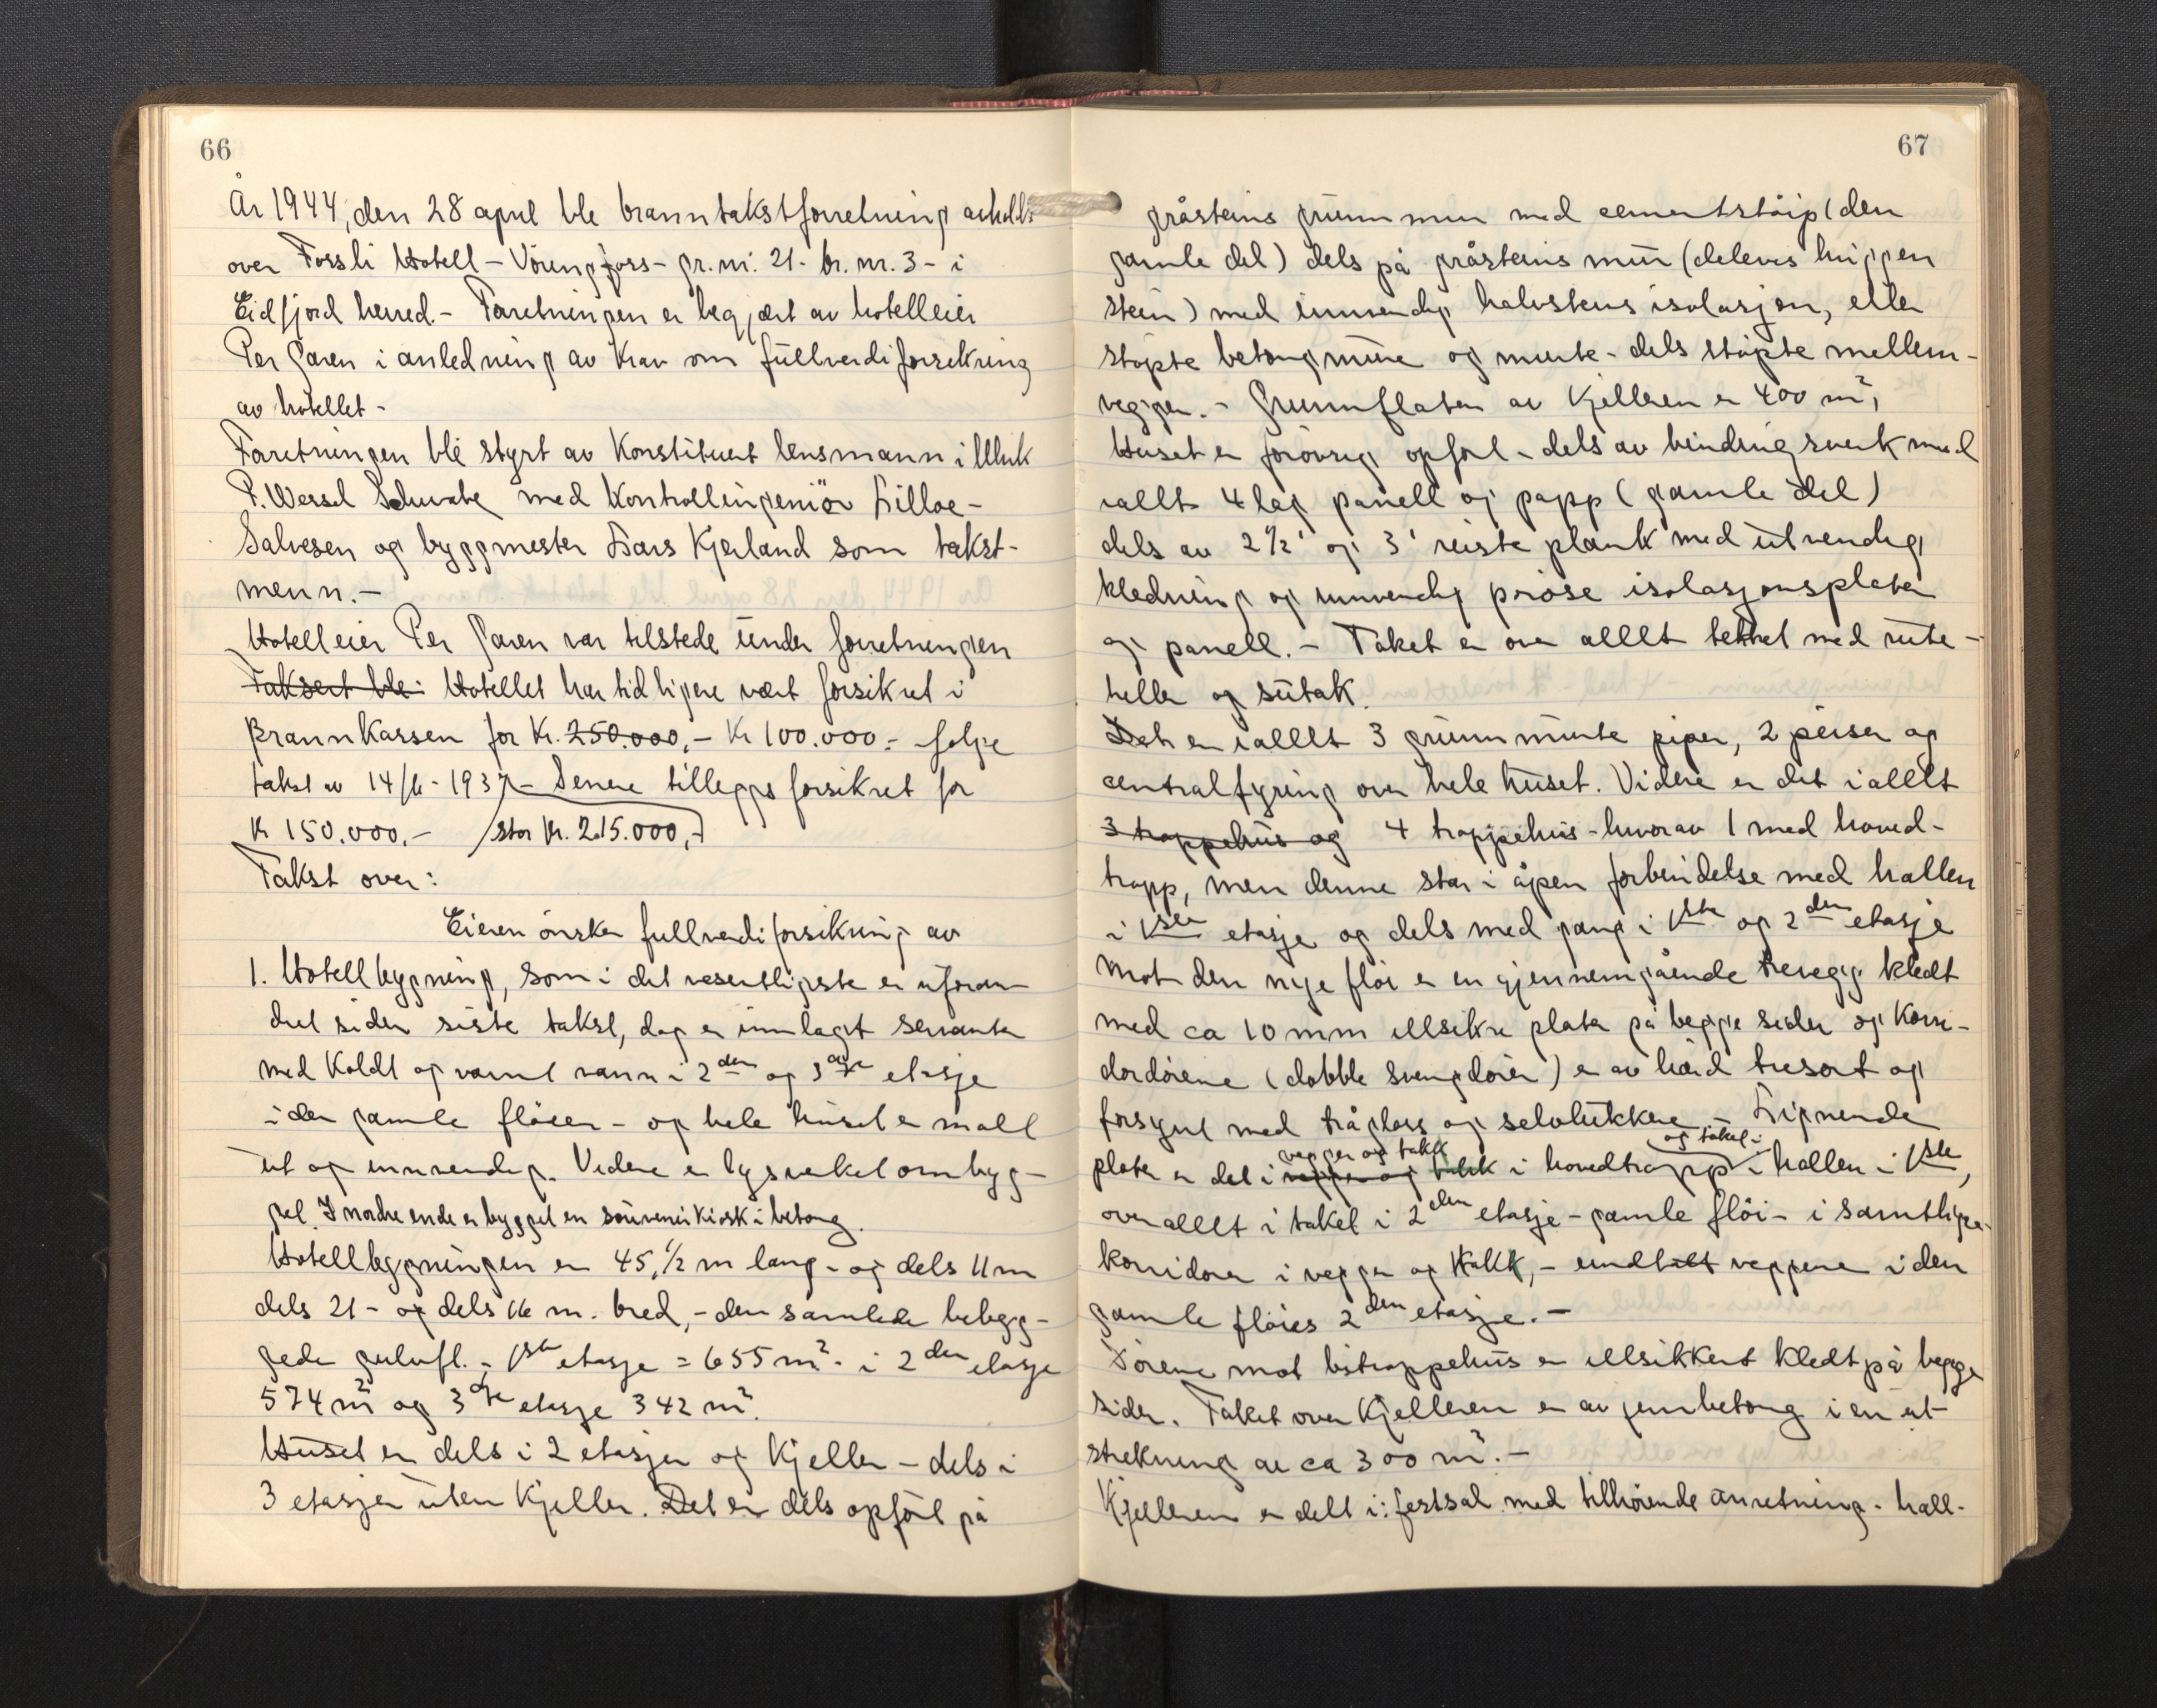 66
År 1944, den 28 april ble branntakstforretning avholdt
over Fossli Hotell – Vöringfoss – gr.nr. 21 - br. nr. 3 - i
Eidfjord herred. – Forretningen er begjært av hotelleier
Per Garen i anledning av krav om fullverdiforsikring
av hotellet –
Forretningen ble styrt av konstituert lensmann i Ulvik
P. Wessel Schwabe med kontrollingeniör Lilloe-
Salvesen og byggmester Lars Kjerland som takst-
menn. –
Hotelleier Per Garen var tilstede under forretningen
Taksert ble: Hotellet har tidligere vært forsikret i
Brannkassen for kr. 250.000,- Kr 100.000.- ifølge
takst av 14/6 - 1937 – Senere tilleggsforsikret for
Kr 150.000,- stor kr. 215.000,-
Takst over:
Eieren önsker fullverdiforsikring av
1. Hotellbygning, som i det vesentligste er uforan-
dret siden siste takst, dog er innlagt servanter
med koldt og varmt vann i 2den og 3dje etasje
i den gamle flöien – og hele huset er malt
ut og innvendig. Videre er lysverket ombyg-
get. I nordre ende er bygget en souvenirkiosk i betong.
Hotellbygningen er 45,1/2 m lang – og dels 11 m
dels 21 – og dels 16 m. bred, – den samlede bebyg-
gede gulvfl. i 1ste etasje = 655 m². i 2den etasje
574 m² og 3dje etasje 342 m².
Huset er dels i 2 etasjer og kjeller – dels i
3 etasjer uten kjeller. Det er dels opfört på
67
gråsteins grunnmur med cementstöip (den
gamle del) dels på gråsteins mur (delevis huggen
stein) med innvendig halvstens isolasjon, eller
stöpte betongmure og murte - dels stöpte mellem-
vegger. – Grunnflaten av kjelleren er 400 m²,
Huset er forövrig opfört – dels av bindingsverk med
iallt 4 lag panell og papp (gamle del)
dels av 2 1/2' og 3' reiste plank med utvendig
kledning og innvendig poröse isolasjonsplater
og panell. – Taket er over alllt tekket med rute-
heller og sutak.
Det er ialllt 3 grunnmurte piper, 2 peiser og
centralfyring over hele huset. Videre er det iallt
3 trappehus og 4 trappehus – hvorav 1 med hoved-
trapp, men denne står i åpen forbindelse med hallen
i 1ste etasje og dels med gang i 1ste og 2den etasje
Mot den nye flöi er en gjennemgående trevegg kledt
med ca 10 mm illsikre plater på begge sider og korri-
dordörene (dobble svingdörer) er av hård tresort og
forsynt med tråglass og selvlukkere – Lignende
vegger og takk
og taket i
plater er det i vegger og takk i hovedtrapp i hallen i 1ste,
overalllt i taket i 2den etasje – gamle flöi – i samtlige
korridorer i vegger og takk, – undtatt veggene i den
gamle flöies 2den etasje. –
Dörene mot bitrappehus er illsikkert kledt på begge
sider. Taket over kjelleren er av jernbetong i en ut-
strekning av ca 300 m². –
Kjelleren er delt i: festsal med tilhörende anretning - hall-